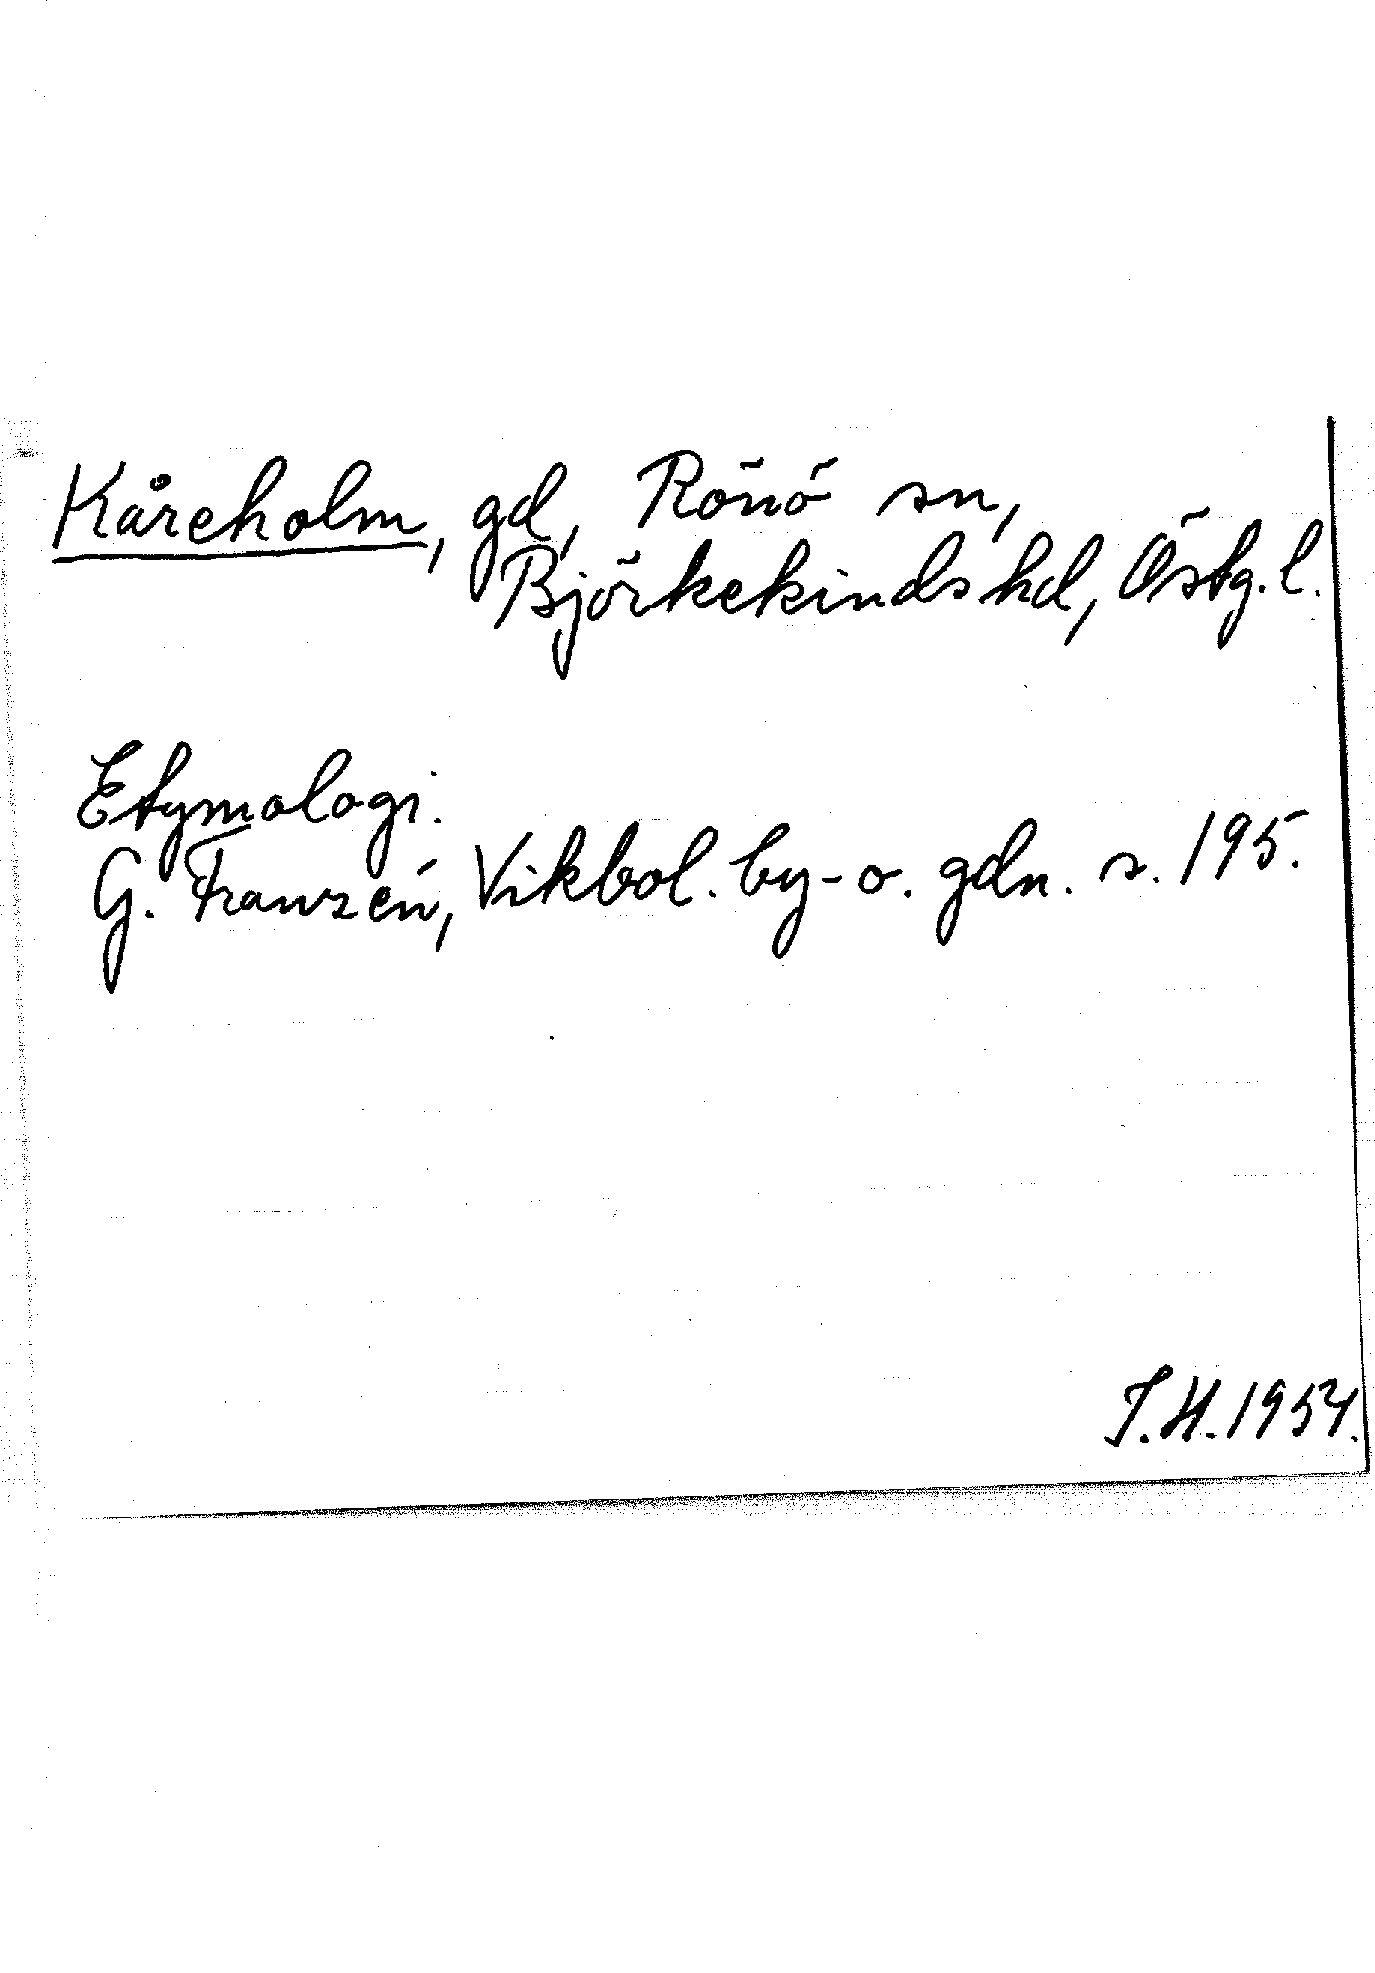 Kåreholm, gd, Rönö sn,
Björkekinds hd, Östg. l.
Etymologi.
G. Franzén, Vikbol. by- o. gdn. s. 195.
I.H. 1954.